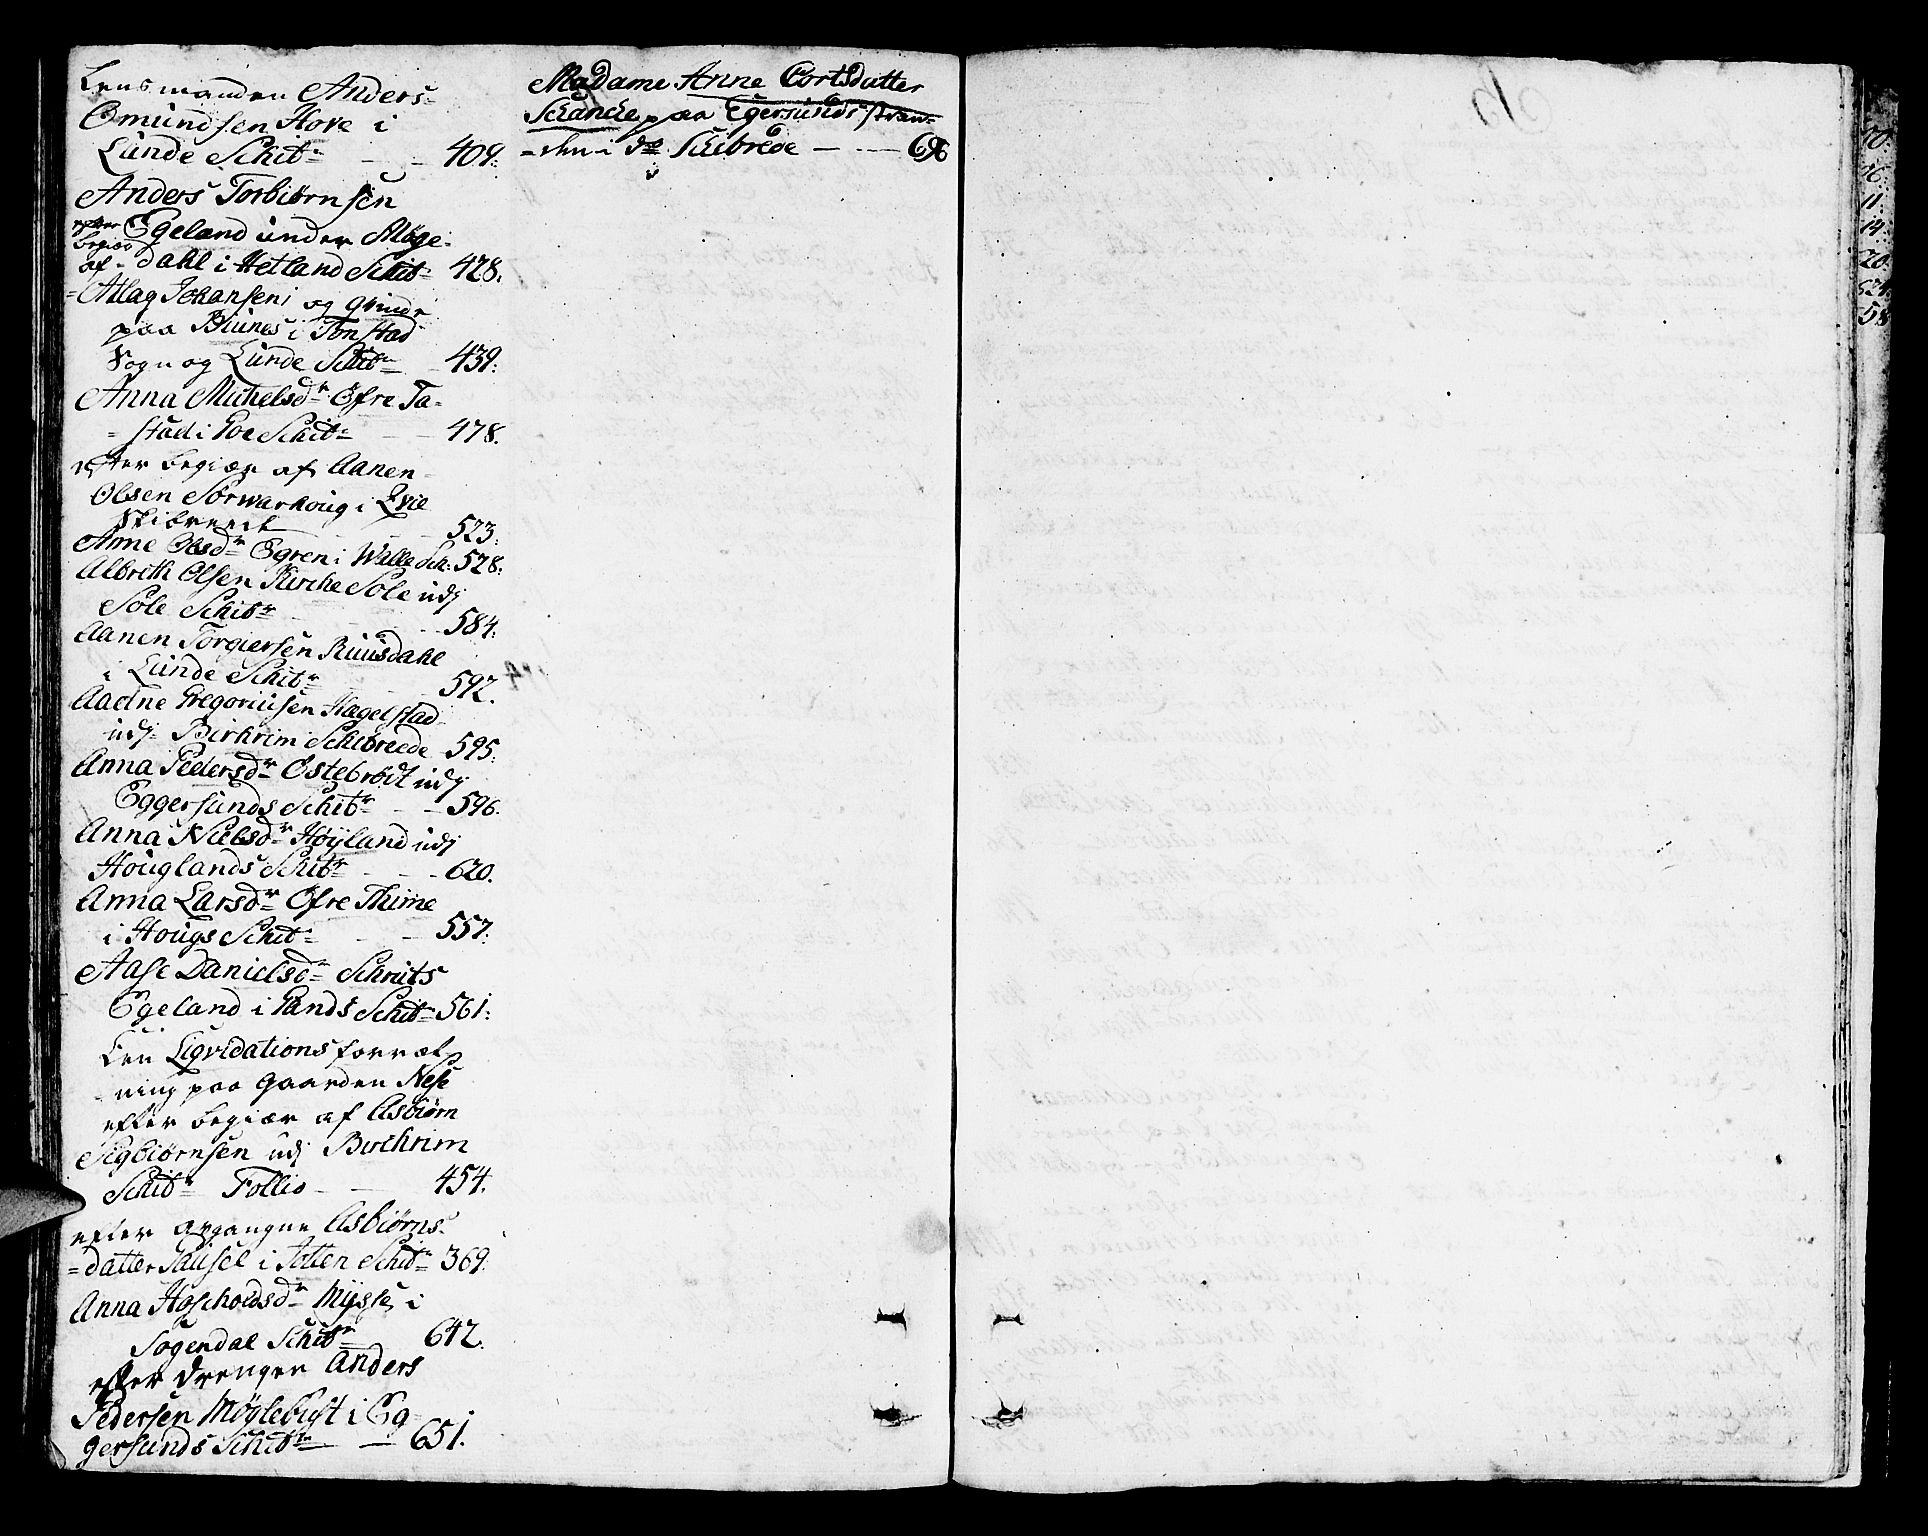 Lensmanden Anders-
Omundsen Hove i
Lunde Schib: - - 409:
Anders Torbiørnsen
Egeland under Møge-
efter begier af - dahl i Hetland Schib: 428.
Atlag Johansen og qvinde
paa Biunes i Tonstad
Sogn og Lunde Schib: - 439:
Anna Michelsd: Øfre Ta-
=stad i Goe Schib: - - 478.
efter begier af Aanen
Olsen Sørwarhoug i
Skibrede - - 523:
Anne Olsd: Egren i Walle Sch: 528:
Albreth Olsen Kirche Sole udj
Sole Schib: - - 584:
Aanen Torgiersen Ruusdahl
i Lunde Schib: - - 592.
Aadne Gregoriusen Hægelstad
udj Birkrim Schibreede - 595:
Anna Pedersd: Østebrødt udj
Eggersunds Schib: - - 596.
Anna Nielsd: Høyland udj
Houglands Schib: - - 620.
Anna Larsd: Øfre Thime
i Hougs Schib: - - 557:
Aase Danielsd: Schruts
Egeland i Gands Schib: 561:
Een Liqvidations forræt-
ning paa Gaarden Nese
efter begiær af Asbiørn
Sigbiørnsen udj Birchrim
Schib: Follio - - 454.
efter Asbiørns-
=datter Sausel i Jatten Schib: 369:
Anna Hoscholdsd: Mysse i
Sogendal Schib: 642.
efter drengen Anders
Pedersen Møglebust i Eg-
gersunds Schib: - 651.
Madame Anne Cortsdatter
Schancke paa Egersunds stran-
=den i d: Schibrede - - 696